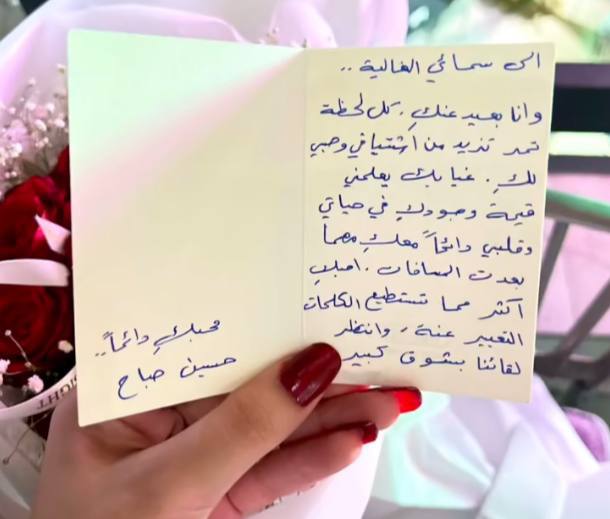 الى سمائي الغالية ..
وانا بعيد عنكِ . كل لحظة
تمر تزيد من اشتياقي وحبي
لكِ . غيابك يعلمني
قيمة وجودكِ في حياتي
وقلبي دائماً معكِ مهما
بعدت المسافات . احبكِ
أكثر مما تستطيع الكلمات
التعبير عنة ، وانتظر
لقائنا بشوق كبير
محبكِ دائماً ..
حسين صباح